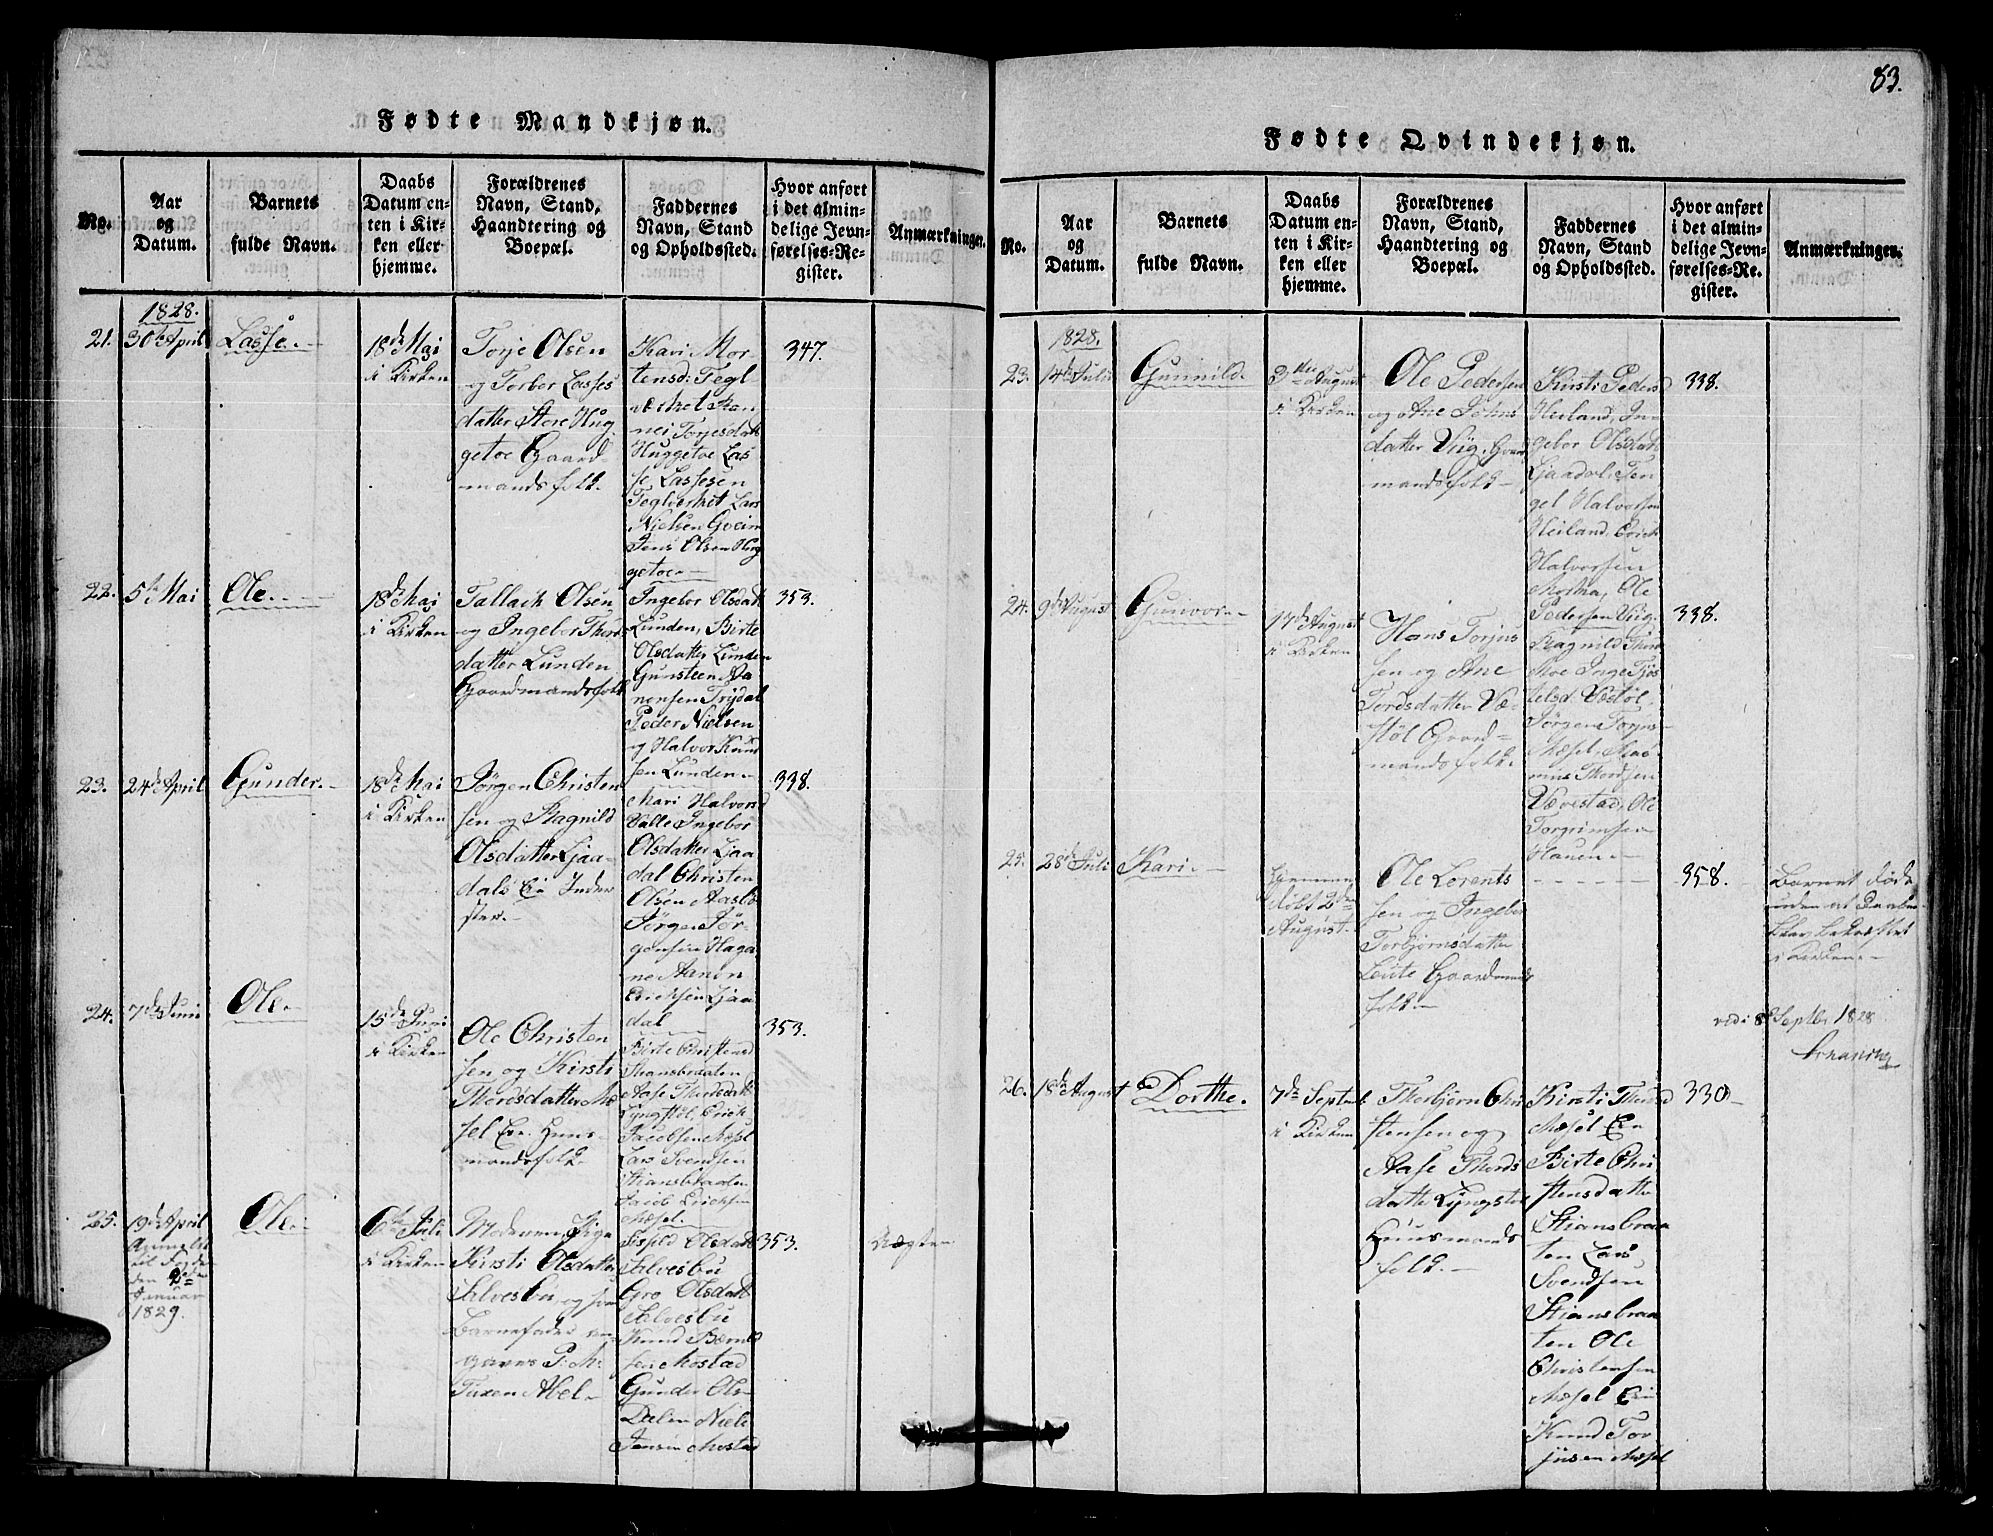 83.
Fødte Mandkjøn.
No.
Aar
og
Datum.
Barnets
fulde Navn.
Daabs
Datum en-
ten i Kir-
ken eller
hjemme.
Forældrenes
Navn, Stand,
Haandtering og
Boepæl.
Faddernes
Navn, Stand
og Opholdssted.
Hvor anført
i det almin-
delige Jevn-
førelses-Re-
gister.
Anmærkninger.
1828.
21.
30te April
Lasse.
18de Mai
i Kirken
Torje Olsen
og Torbor Lasses
datter Store Hug
getoe Gaard-
mandsfolk
Kari Mor-
tensd: Tegl
værket
Torjesdatt
Huggetoe Las
se Lassesen
Teglverket Lars
Nielsen
Jens Olsen Hug
getoe
347.
22.
5te Mai
Ole.
18de Mai
i Kirken
Tallach Olsen
og Ingebor Thors
datter Lunden
Gaardmandsfolk
Ingebor Olsdatt
Lunden, Birte
Olsdatter Lunden
Gunsteen Aa
nensen Trydal
Peder Nielsen
og Halvor Knud
sen Lunden
353.
23.
24de April
Gunder.
18de Mai
i Kirken
Jørgen Christen
sen og Ragnild
Olsdatter Ljaa-
dals Ei Inder
ster.
Mari Halvorsd
Valle Ingebor
Olsdatter Ljaa
dal Christen
Olsen Aasbø
Jørgen Jør-
gensen Haga
ne Aanon
Erichsen Ljaa
dal
338.
24.
7de Juni
Ole.
15de Juni
i Kirken
Ole Christen
sen og Kirsti
Thordsdatter Mæ
sel Eie Huus-
mandsfolk.
Birte Christensd
Stiansbraaten
Aase Thordsdatt
Lyngstøl Erich
Jacobsen Mæsel
Lars Svendsen
Stiansbraaten
Jacob Erichsen
Mæsel.
353.
25.
19de April
Anmeldt
til Fogden
den 2de
Januar
1829.
Ole.
6te Juli
i Kirken
Moderen Pige
Kirsti Olsdatter
Salvesbu, og som
Barnefader an-
gaves P: M:
Tuxen Abel
Olsdatt
Salvesbu
Gro Olsdatt
Salvesbu
Knud Bernt
sen Mostad
Gunder Ols-
Dalen Niels
Jensen Mostad
353.
Uægte
Fødte Qvindekjøn.
No.
Aar
og
Datum.
Barnets
fulde Navn.
Daabs
Datum en-
ten i Kir-
ken eller
hjemme.
Forældrenes
Navn, Stand,
Haandtering og
Boepæl.
Faddernes
Navn, Stand
og Opholdssted.
Hvor anført
i det almin-
delige Jevn-
førelses-Re-
gister.
Anmærkninger.
1828.
23.
14de Juli
Gunnild.
3die August
i Kirken
Ole Pedersen
og Ane Johns
datter Viig. Gaard
mandsfolk
Kirsti Peders
Heiland, In-
gebor Olsdatt
Ljaadal, Ten
gel Halvorsen
Heiland, Erich
Halvorsen
Ole
Pedersen Viig.
338.
24.
9de August
Gunvor.
17de August
i Kirken
Hans Torjus
sen og Ane
Tordsdatter Væ-
støl Gaard-
mandsfolk.
Ragnild Thor
Moe Inge
Vestøl.
Jørgen Torjus-
Mæsel, Raś-
mus Thordsen
Vævestad, Ole
Torgrimsen
Hauen
338.
25.
28de Juli
Kari.
Hjemme
døbt 2den
August.
Ole Lorents
sen og Ingebor
Torbjørnsdatter
Leite Gaardmands
folk
358.
Barnet døde
inden at Daaben
blev bekræftet
i Kirken.
vidi 8de Septbr 1828
26.
18de August
Dorthe.
7de Septemb
i Kirken
Thorbjørn Chri
stensen og
Aase Thords
datter Lyngstøl
Huusmands
folk.
Kirsti Thord
Mæsel Eie
Birte Chri
stensdatter
Stiansbraa
ten Lars
Svendsen
Stiansbraa
ten Ole
Christensen
Mæsel Eie
Knud Tor
jusen Mæsel
330